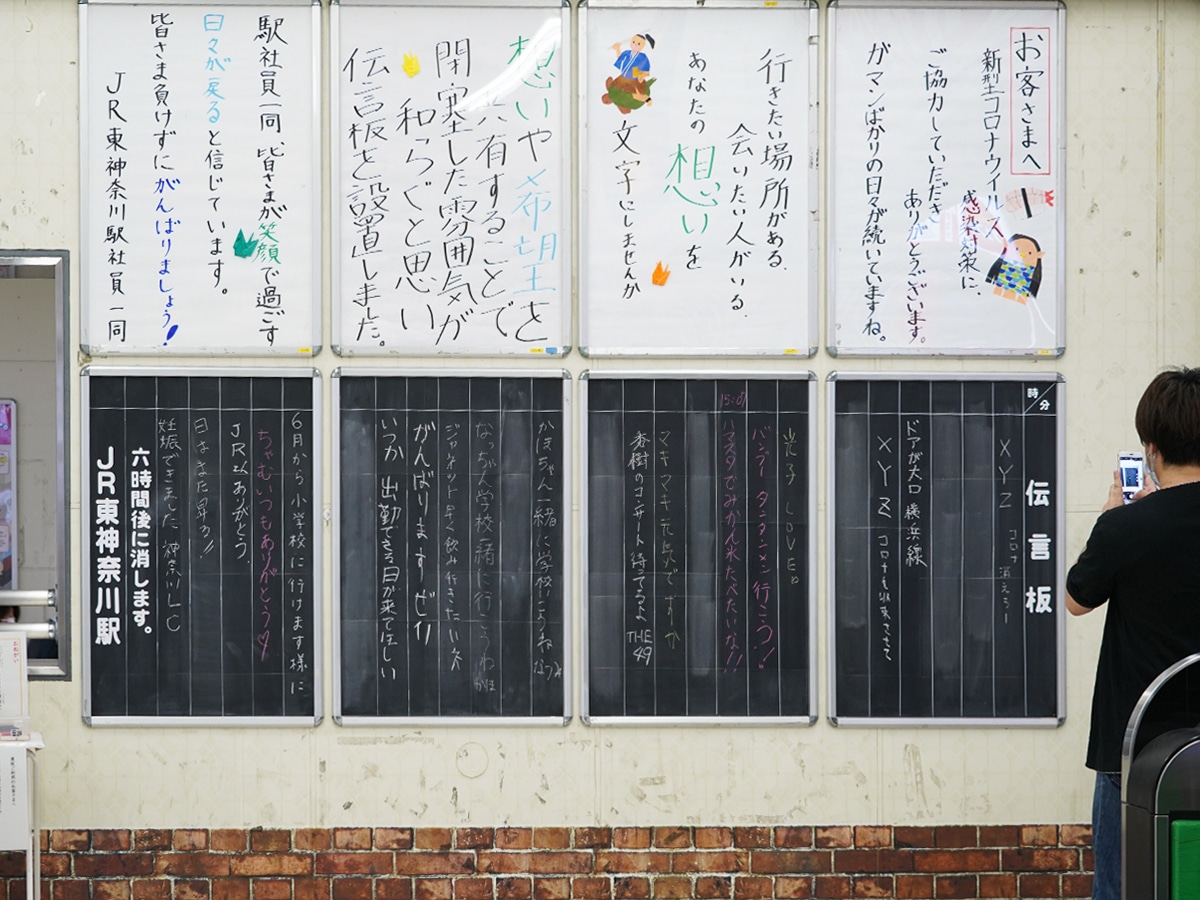 お客さまへ
新型コロナウイルス
感染対策に、
ご協力していただき
ありがとうございます。
ガマンばかりの日々が続いていますね。
行きたい場所がある、
会いたい人がいる、
あなたの想いを
文字にしませんか
想いや希望を
共有することで
閉塞した雰囲気が
和らぐと思い
伝言板を設置しました。
駅社員一同、皆さまが笑顔で過ごす
日々が戻ると信じています。
皆さま負けずにがんばりましょう!
JR東神奈川駅社員一同
時/分
伝言板
XYZ コロナ消えろー
ドアが大口 横浜線
XYZ コロナを
LOVE
バンゲー タンタンメン 行こう!
15:01 ハマスタでみかん氷たべたいな!!
マキマキ 元気ですか
秀樹のコンサート 待ってるよ THE 49
かほちゃん一緒に学校
なっちゃん学校一緒に行こうね かほ
飲み行きたい
がんばりますぜ
いつか 出勤できる日が来てほしい
6月から小学校に行けます様に
ちゃむいつもありがとう♡
JRさんありがとう。
日はまた昇る!!
妊娠できました 神奈川LC
六時間後に消します。
JR東神奈川駅